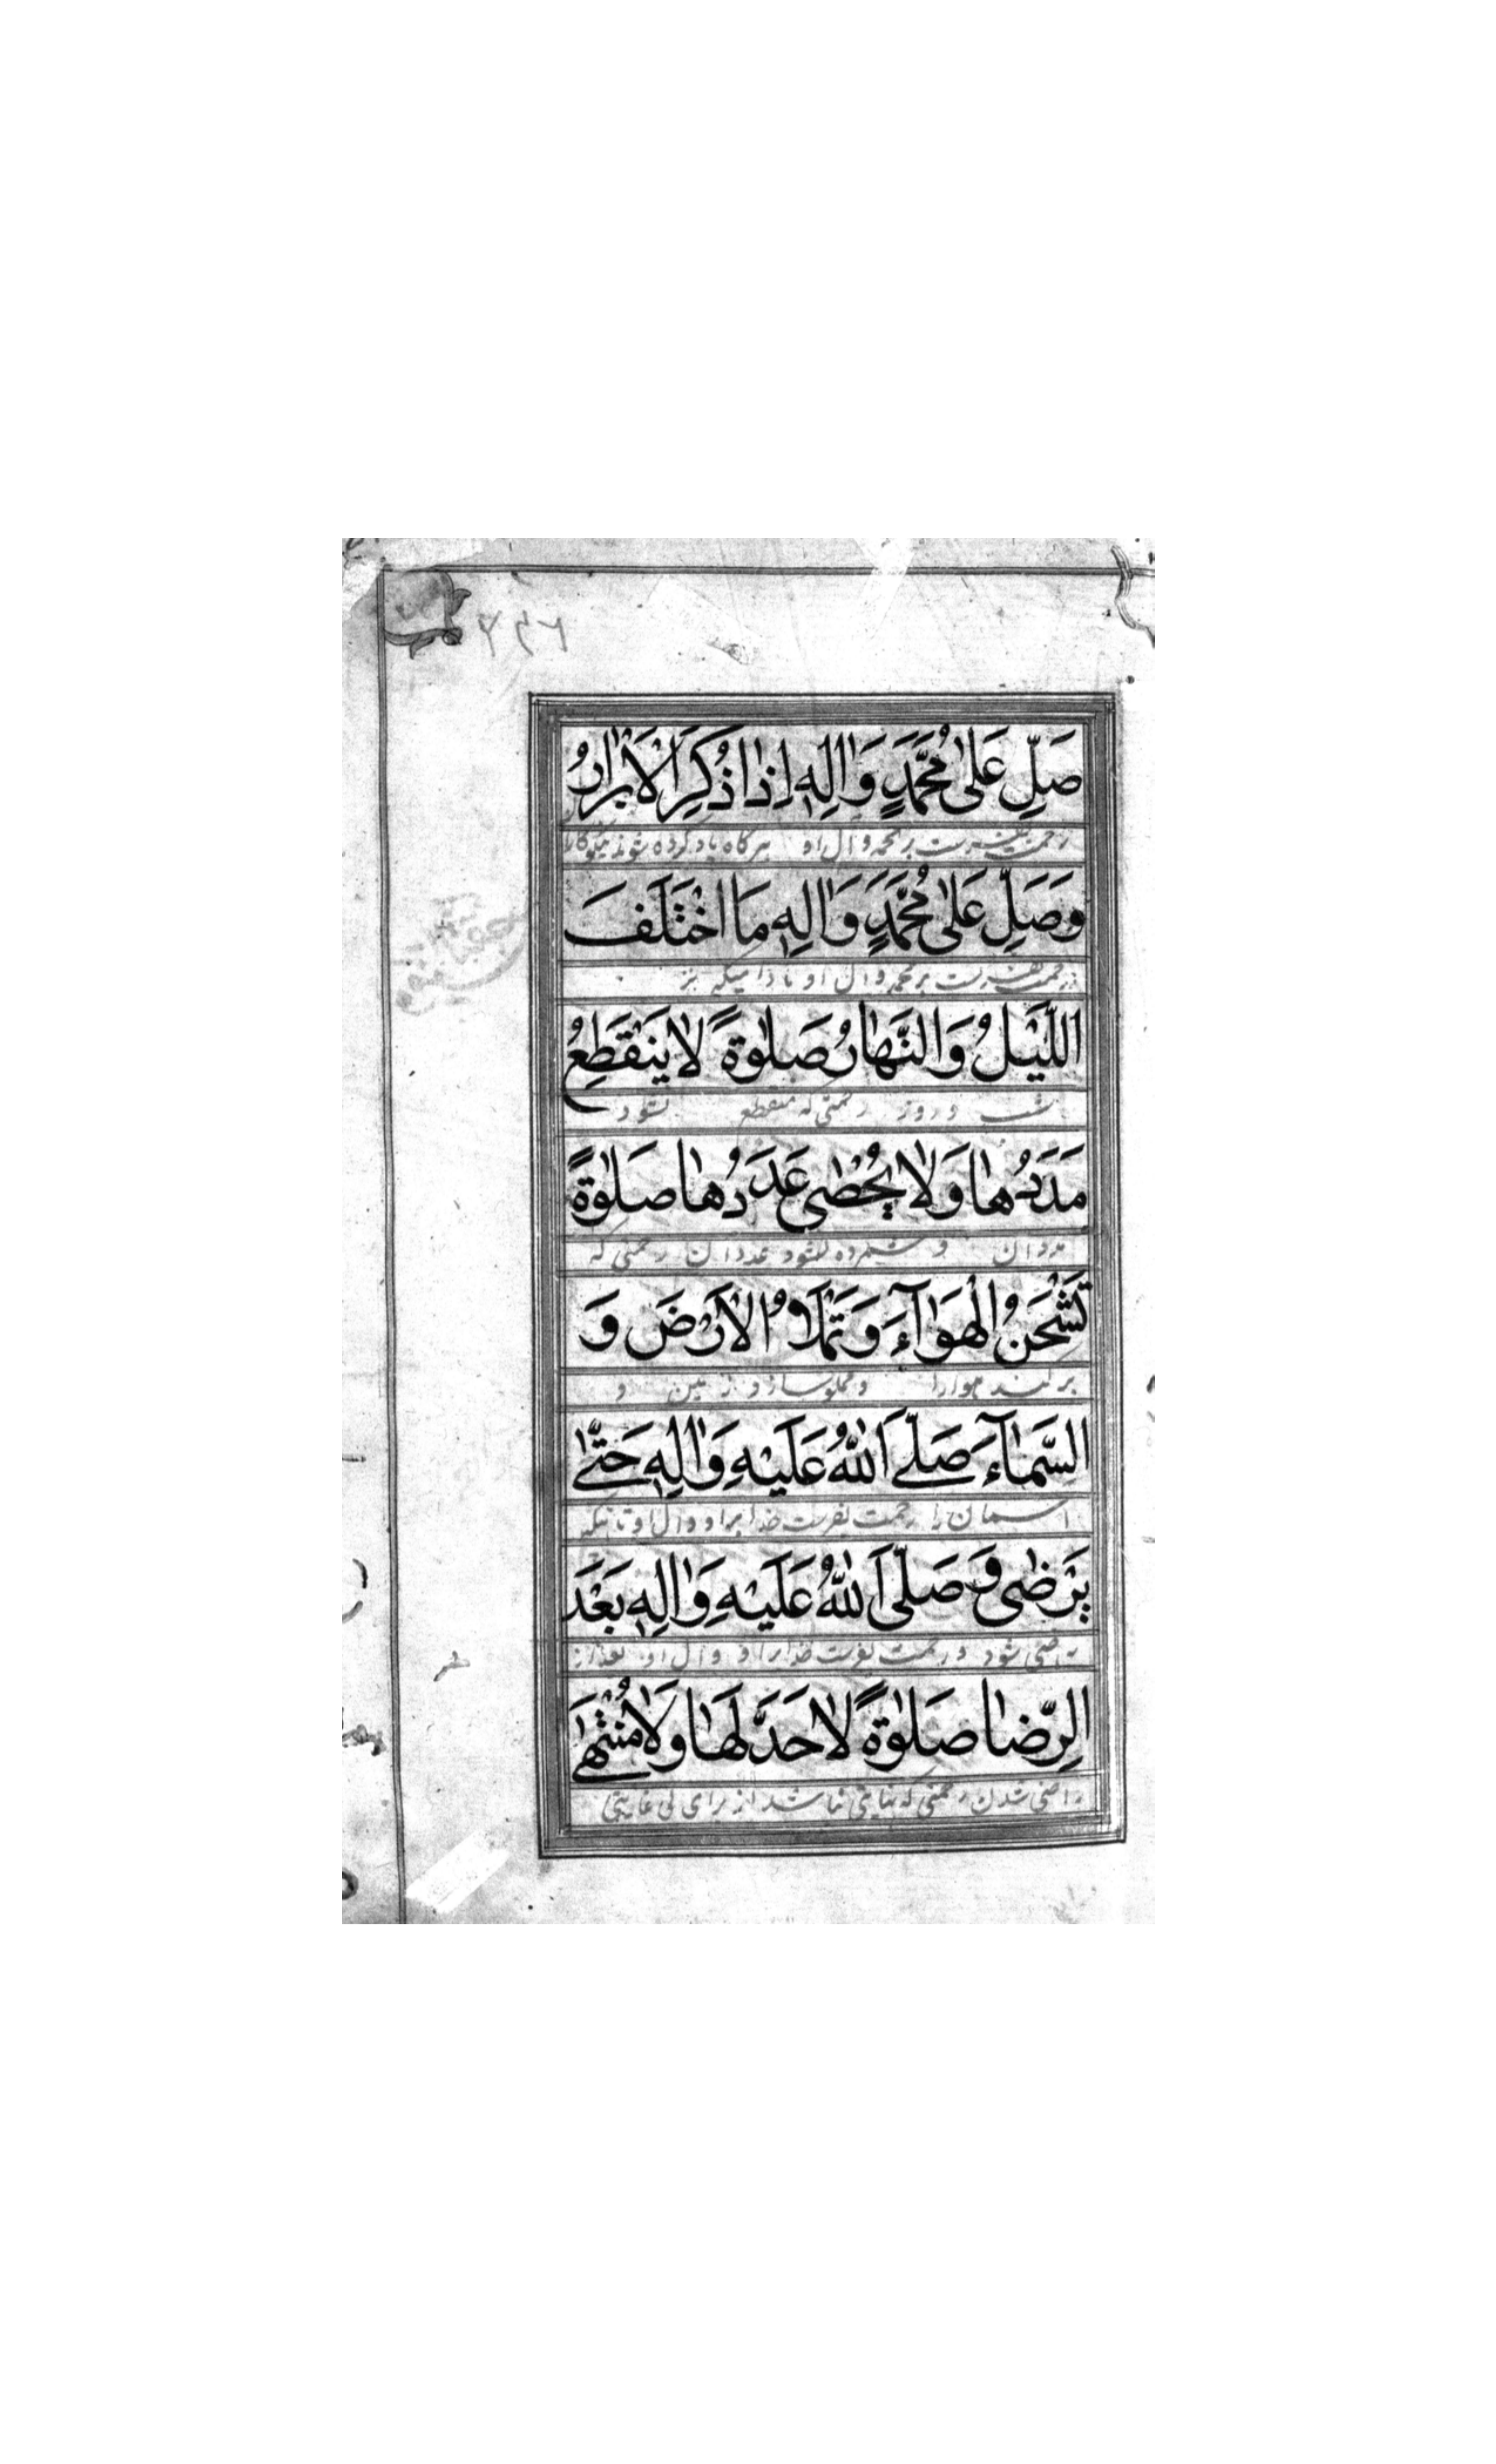 ۲۴۶
صَلِّ عَلىٰ مُحَمَّدٍ وَاٰلِهٖ اِذٰا ذُكِرَ الْاَبْرٰارُ
رحمت بفرست بر محمد و آل او هرگاه یاد کرده شوند نیکوکاران
وَصَلِّ عَلىٰ مُحَمَّدٍ وَاٰلِهٖ مَا اخْتَلَفَ
رحمت بفرست بر محمد و آل او مادامیکه
اللَّيْلُ وَالنَّهٰارُ صَلٰوةً لٰا يَنْقَطِعُ
شب و روز رحمتی که منقطع نشود
مَدَدُهٰا وَلٰا يُحْصٰى عَدَدُهٰا صَلٰوةً
مدد آن و شمرده نشود عدد آن رحمتی که
تَشْحَنُ الْهَوٰآءَ وَتَمْلَاُ الْاَرْضَ وَ
پر کند هوا را و مملو سازد زمین و
السَّمٰآءَ صَلَّى اللّٰهُ عَلَيْهِ وَاٰلِهٖ حَتّٰى
آسمان را رحمت بفرست خدا بر او و آل او تا اینکه
يَرْضٰى وَصَلَّى اللّٰهُ عَلَيْهِ وَاٰلِهٖ بَعْدَ
راضی شود و رحمت بفرست خدا بر او و آل او بعد از
الرِّضٰا صَلٰوةً لٰا حَدَّ لَهٰا وَلٰا مُنْتَهٰى
راضی شدن رحمتی که نهایتی نباشد از برای